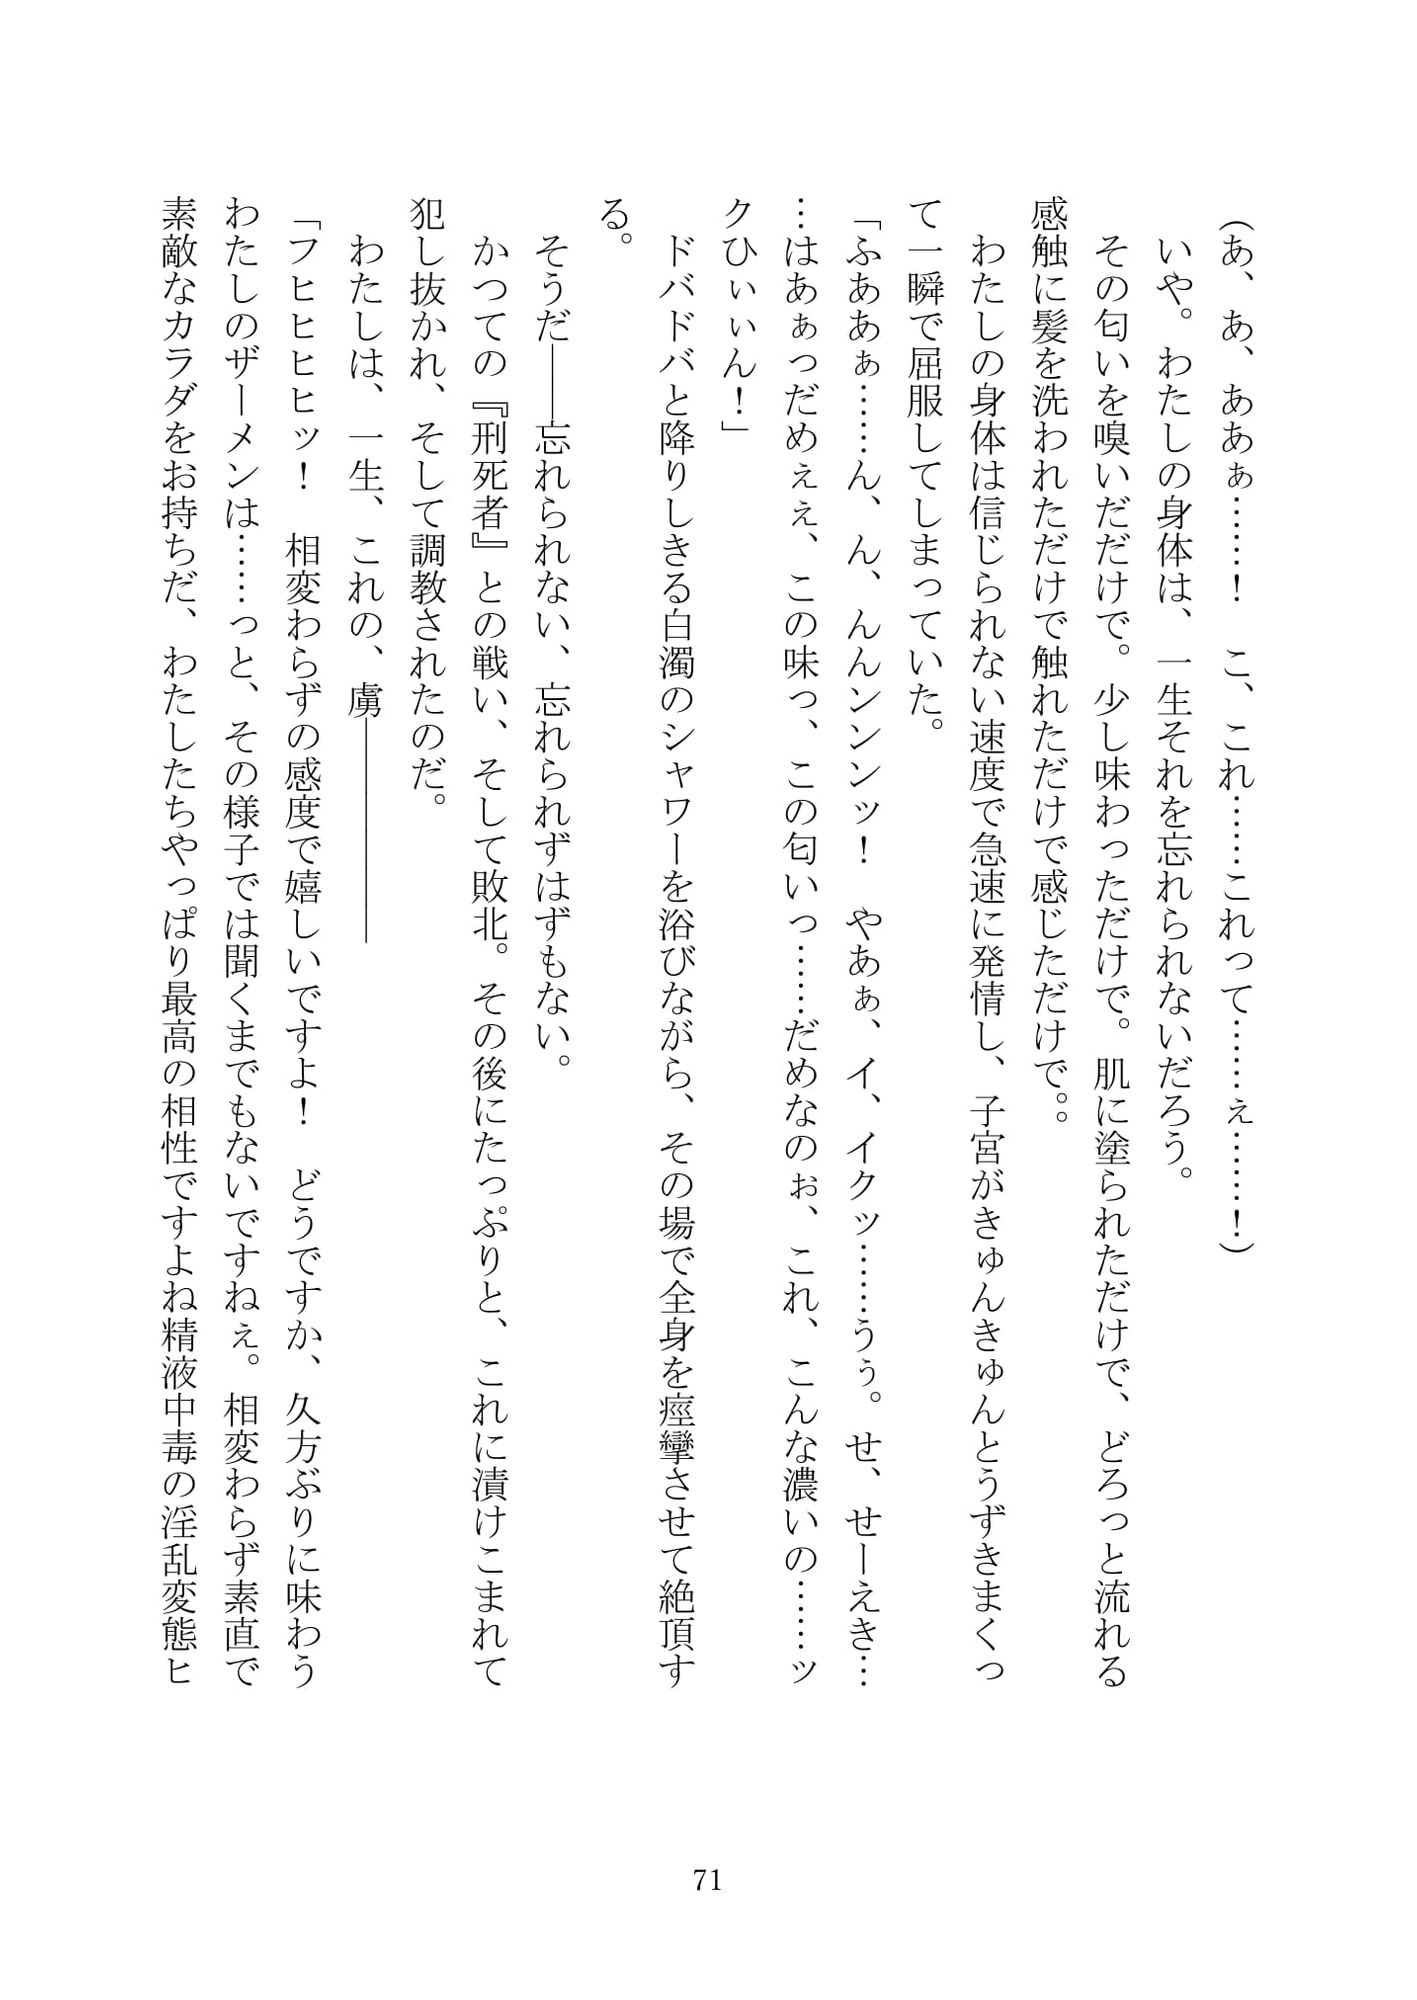 （あ、あ、ああぁ……！　こ、これ……これって……ぇ……！）
　いや。わたしの身体は、一生それを忘れられないだろう。
　その匂いを嗅いだだけで。少し味わっただけで。肌に塗られただけで、どろっと流れる
感触に髪を洗われただけで触れただけで感じただけで。。
　わたしの身体は信じられない速度で急速に発情し、子宮がきゅんきゅんとうずきまくっ
て一瞬で屈服してしまっていた。
「ふああぁ……ん、ん、んんンンンッ！　やあぁ、イ、イクッ……うぅ。せ、せーえき…
…はあぁっだめぇぇ、この味っ、この匂いっ……だめなのぉ、これ、こんな濃いの……ッ
クひぃぃん！」
　ドバドバと降りしきる白濁のシャワーを浴びながら、その場で全身を痙攣させて絶頂す
る。
　そうだ――忘れられない、忘れられずはずもない。
　かつての『刑死者』との戦い、そして敗北。その後にたっぷりと、これに漬けこまれて
犯し抜かれ、そして調教されたのだ。
　わたしは、一生、これの、虜――――――
「フヒヒヒヒッ！　相変わらずの感度で嬉しいですよ！　どうですか、久方ぶりに味わう
わたしのザーメンは……っと、その様子では聞くまでもないですねぇ。相変わらず素直で
素敵なカラダをお持ちだ、わたしたちやっぱり最高の相性ですよね精液中毒の淫乱変態ヒ
71